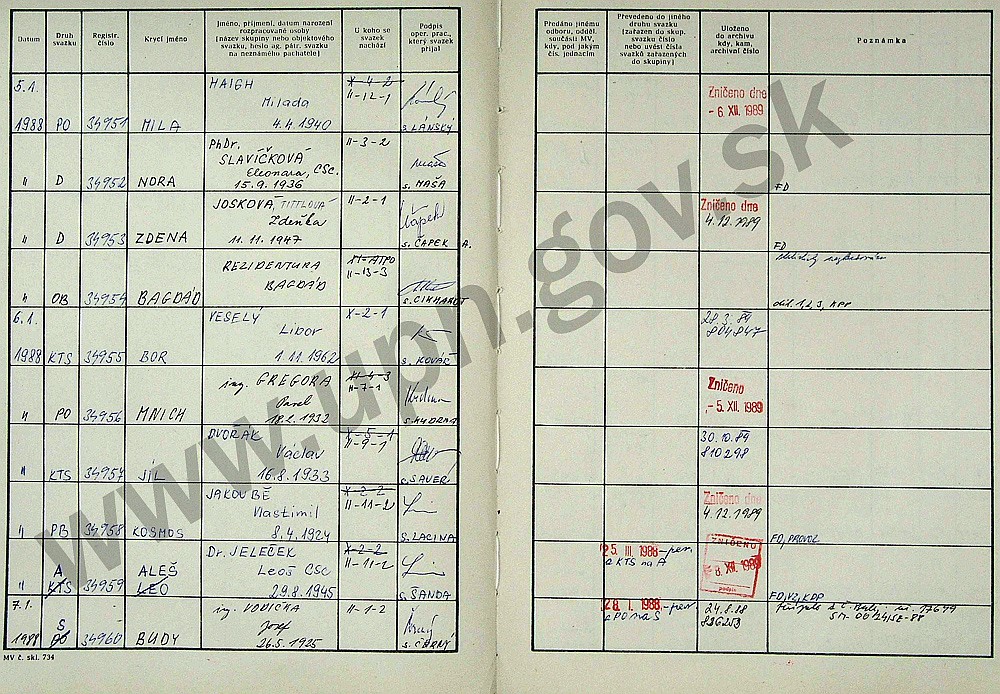 Datum
Druh svazku
Registr. číslo
Krycí jméno
Jméno, příjmení, datum narození rozpracované osoby
(název skupiny nebo objektového svazku, heslo ag. pátr. svazku na neznámého pachatele)
U koho se svazek nachází
Podpis oper. prac., který svazek přijal
Předáno jinému odboru, odděl. součásti MV, kdy, pod jakým čís. jednacím
Převedeno do jiného druhu svazku (zařazen do skup. svazku číslo nebo uvést čísla svazků zařazených do skupiny)
Uloženo do archivu kdy, kam, archivní číslo
Poznámka
5.1.
1988 PO 34951 MILA
HAIGH
Milada
4.4.1940
X-4-2
II-12-1
s. LÁNSKÝ
Zničeno dne
- 6. XII. 1989
" D 34952 NORA
PhDr.
SLAVÍČKOVÁ
Eleonora, CSc.
15.9.1936
II-3-2
s. MAŠA
FD
" D 34953 ZDENA
JOSKOVÁ, TITTLOVÁ
Zdeňka
11.11.1947
II-2-1
s. ČAPEK A.
Zničeno dne
4.12.1989
FD
" OB 34954 BAGDÁD
REZIDENTURA
BAGDÁD
II-13-3
s. CIKHARDT
6.1.
1988 KTS 34955 BOR
VESELÝ
Libor
1.11.1962
X-2-1
s. KOVÁŘ
28.3.89
804847
" PO 34956 MNICH
ing. GREGORA
Pavel
18.2.1932
XI-4-3
II-7-1
Zničeno
- 5. XII. 1989
" KTS 34957 JÍL
DVOŘÁK
Václav
16.8.1933
X-5-1
II-9-1
s. SAUER
30.10.89
810298
" PB 34958 KOSMOS
JAKOUBĚ
Vlastimil
8.4.1924
X-2-2
II-11-2
s. LACINA
Zničeno dne
4.12.1989
FD, PROVOZ
A ALEŠ
" KTS 34959 LEO
Dr. JELEČEK
Leoš CSc
29.8.1945
X-2-2
II-11-2
s. ŠANDA
25. III. 1988 - pev.
z KTS na A
ZNIČENO
8. XII. 1989
podpis
FD, VZ, KDP
7.1.
S
1988 PO 34960 BUDY
ing. VODIČKA
Josef
26.5.1925
II-1-2
s. ČERNÝ
28. I. 1988 - pev.
z PO na S
24.8.88
MV č. skl. 734
www.upn.gov.sk